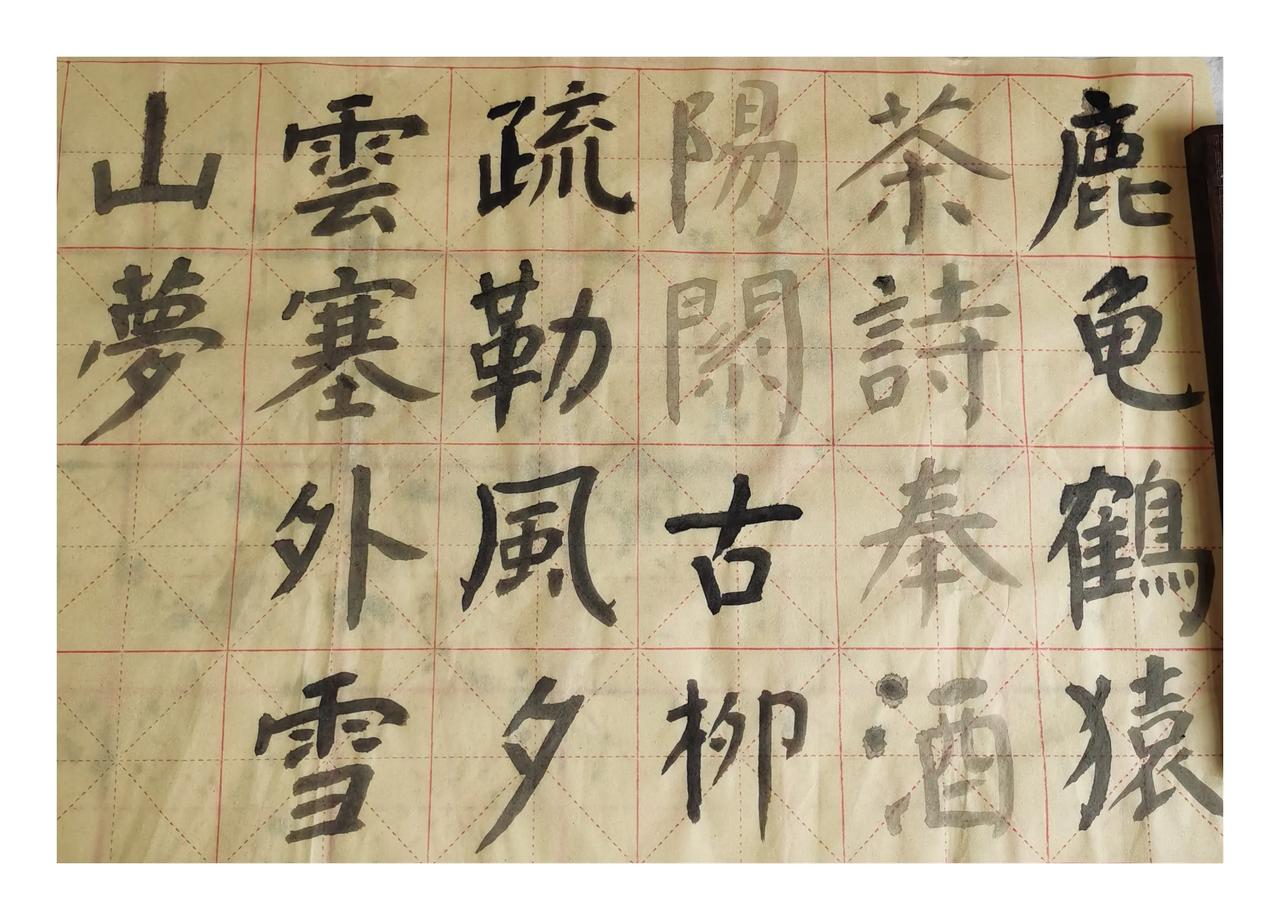 鹿亀鶴猿
茶詩奉酒
陽関古柳
疏勒風夕
雲塞外雪
山夢